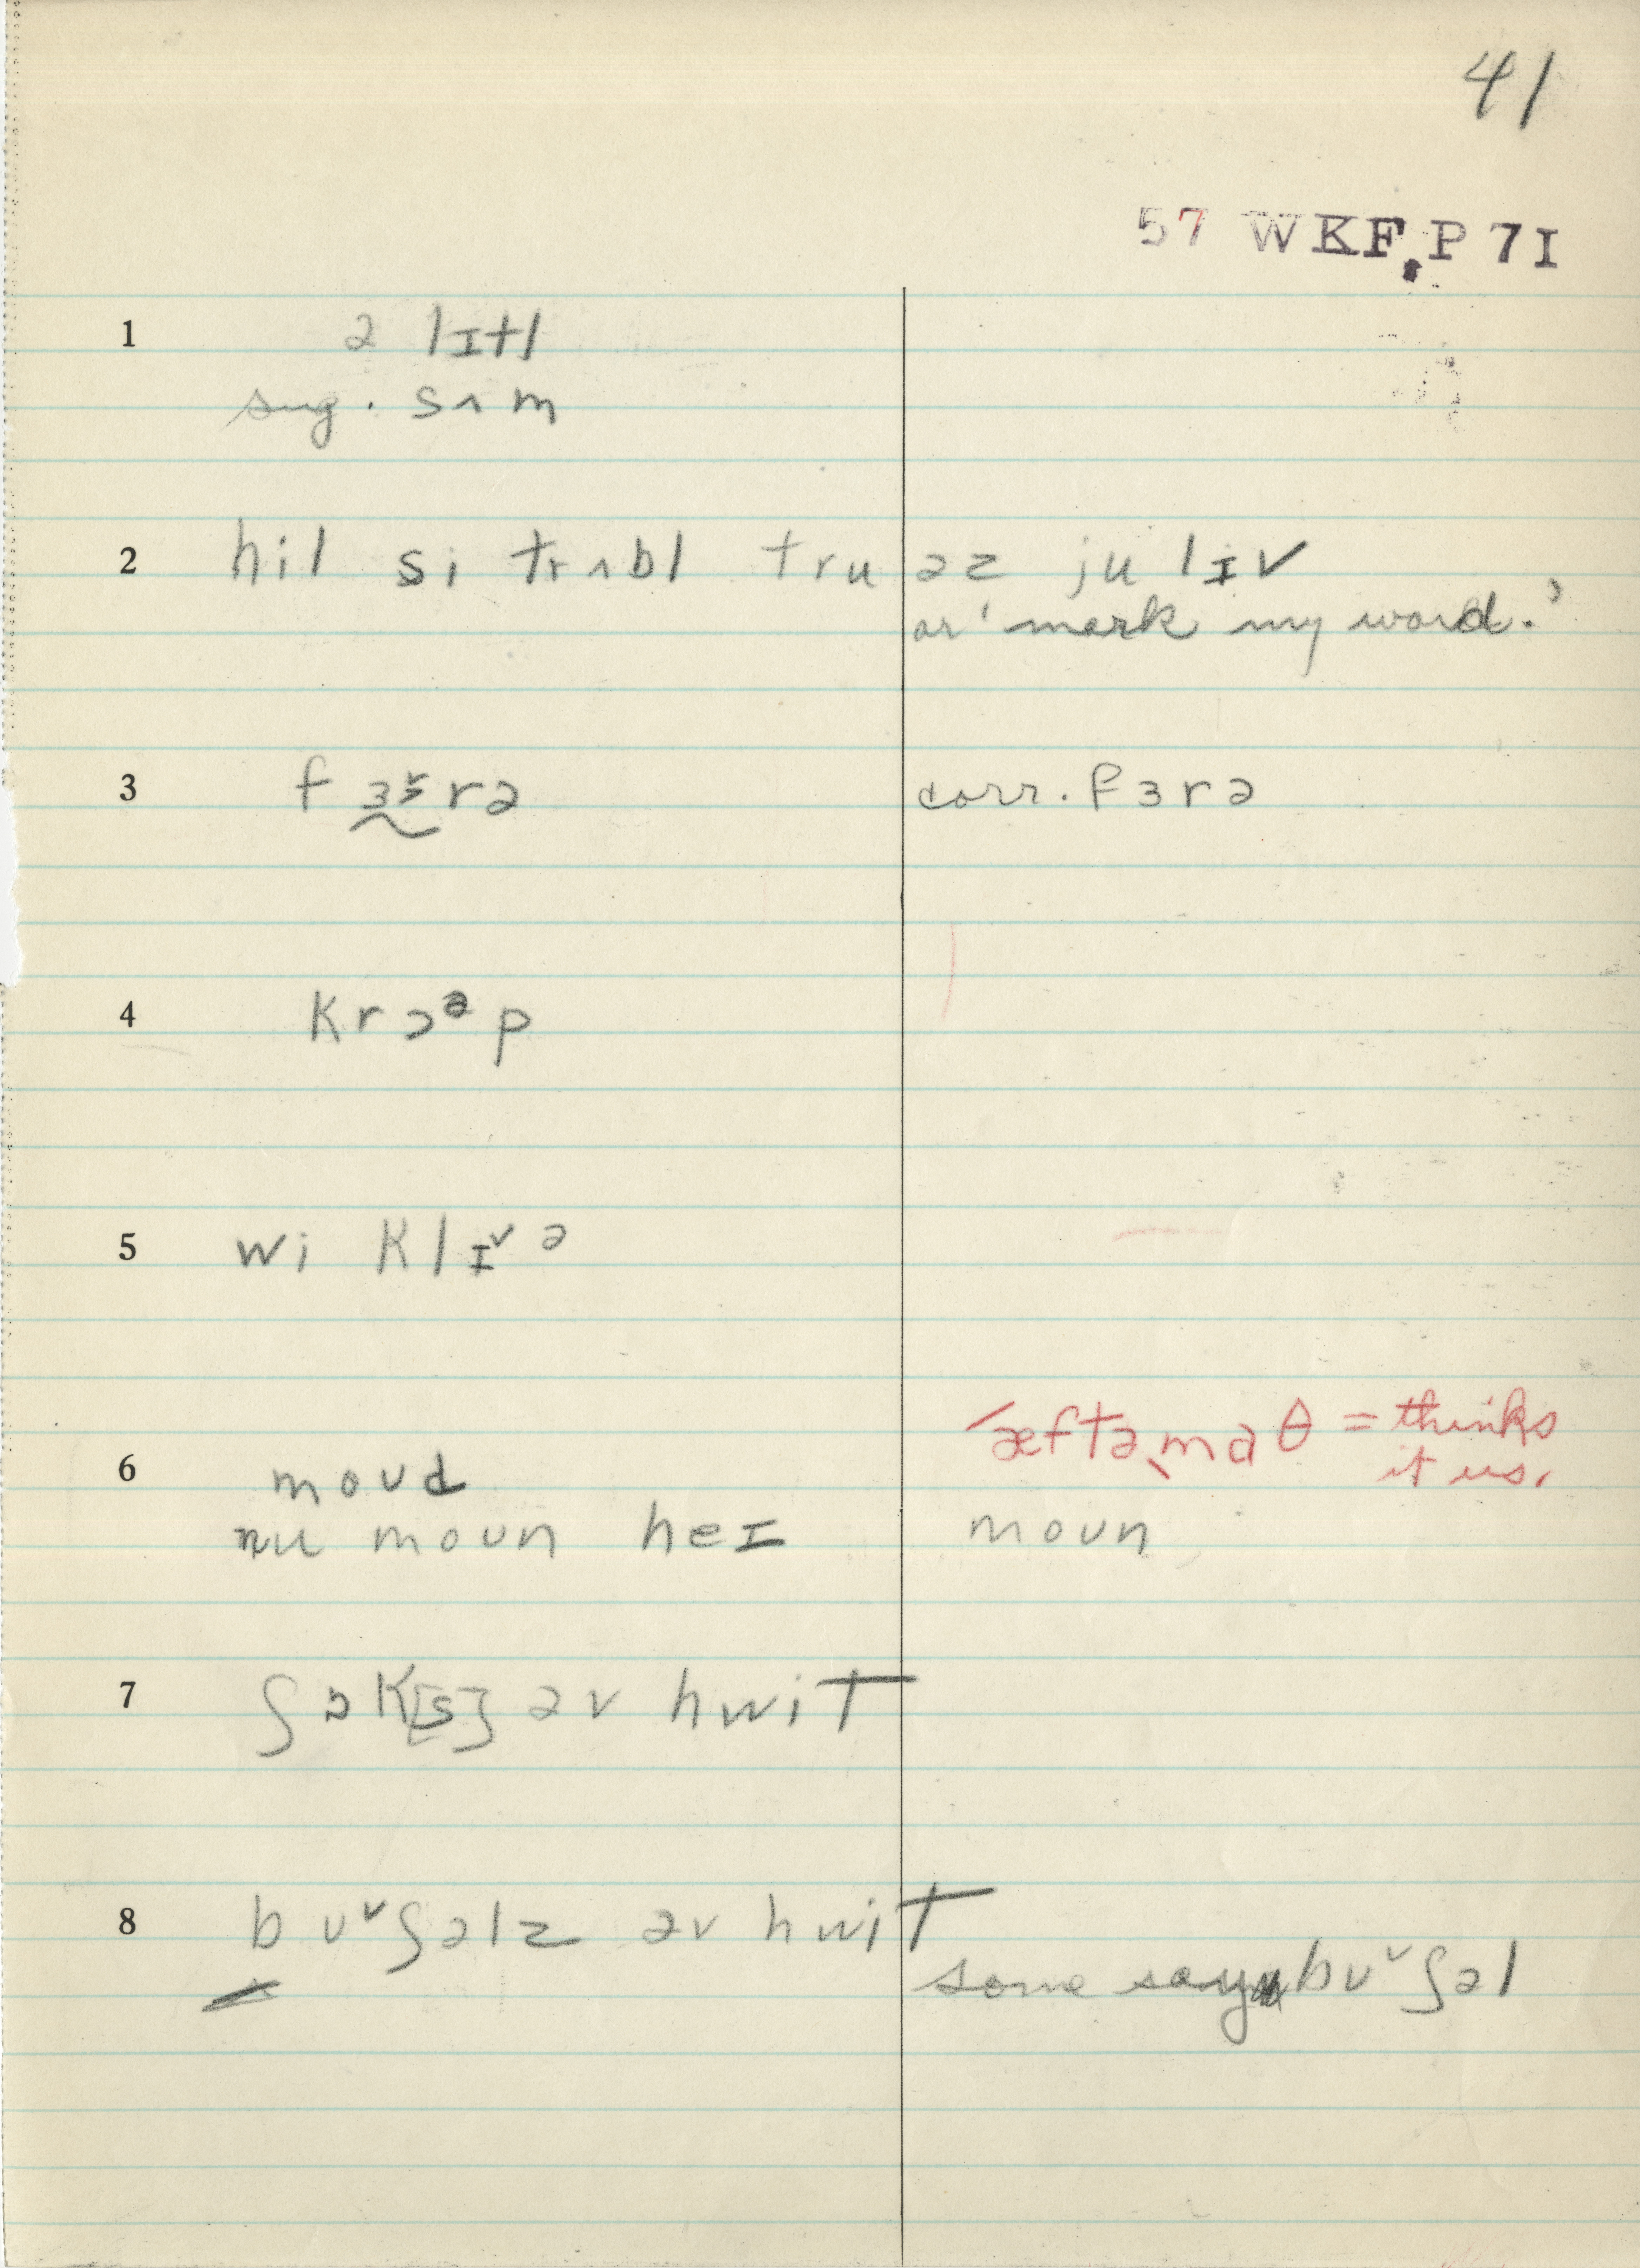 41
57 WKF, P 7I
1 ə lɪtl
sug. sʌm
2 hil si trʌbl tru əz ju lɪv
or 'mark my word.'
3 fɜɜ˅rə corr. fɜrə
4 krɔᵊp
5 wi klɪ˅ə
6 ˈæftəˌmaθ = thinks
it us.
moʊd
nu moʊn heɪ moʊn
7 ʃɒk[s] əv hwit
8 bʊ˅ʃəlz əv hwit
some say bʊ˅ʃəl